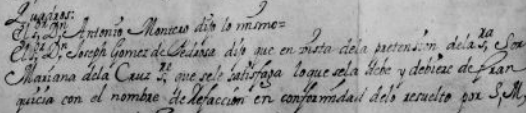 Quadros:
El Sor Dn Antonio Montero dijo lo mismo=
El Sor Dn Joseph Gomez de Pedrosa dijo que en vista dela pretension dela Sra Sor
Mariana dela Cruz que sele satisfaga loque sela debe y debiere de Fran
quicia con el nombre de Refacción en conformidad delo resuelto por S, M,